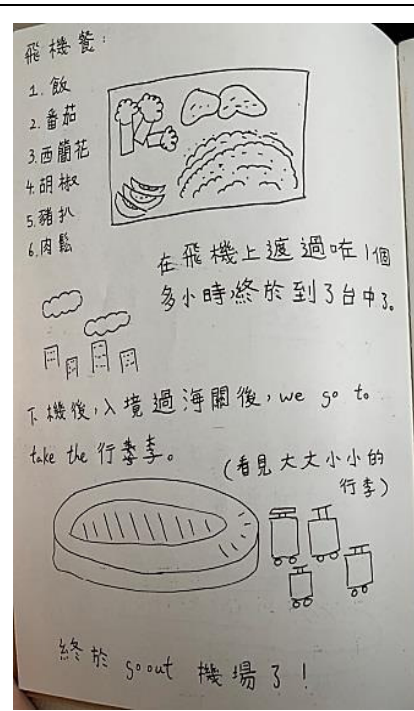 飛機餐:
1. 飯
2. 番茄
3. 西蘭花
4. 胡椒
5. 豬扒
6. 肉鬆
在飛機上渡過咗1個
多小時,終於到了台中了。
下機後,入境過海關後, we go to
take the 行李。
(看見大大小小的
行李)
終於 go out 機場了!